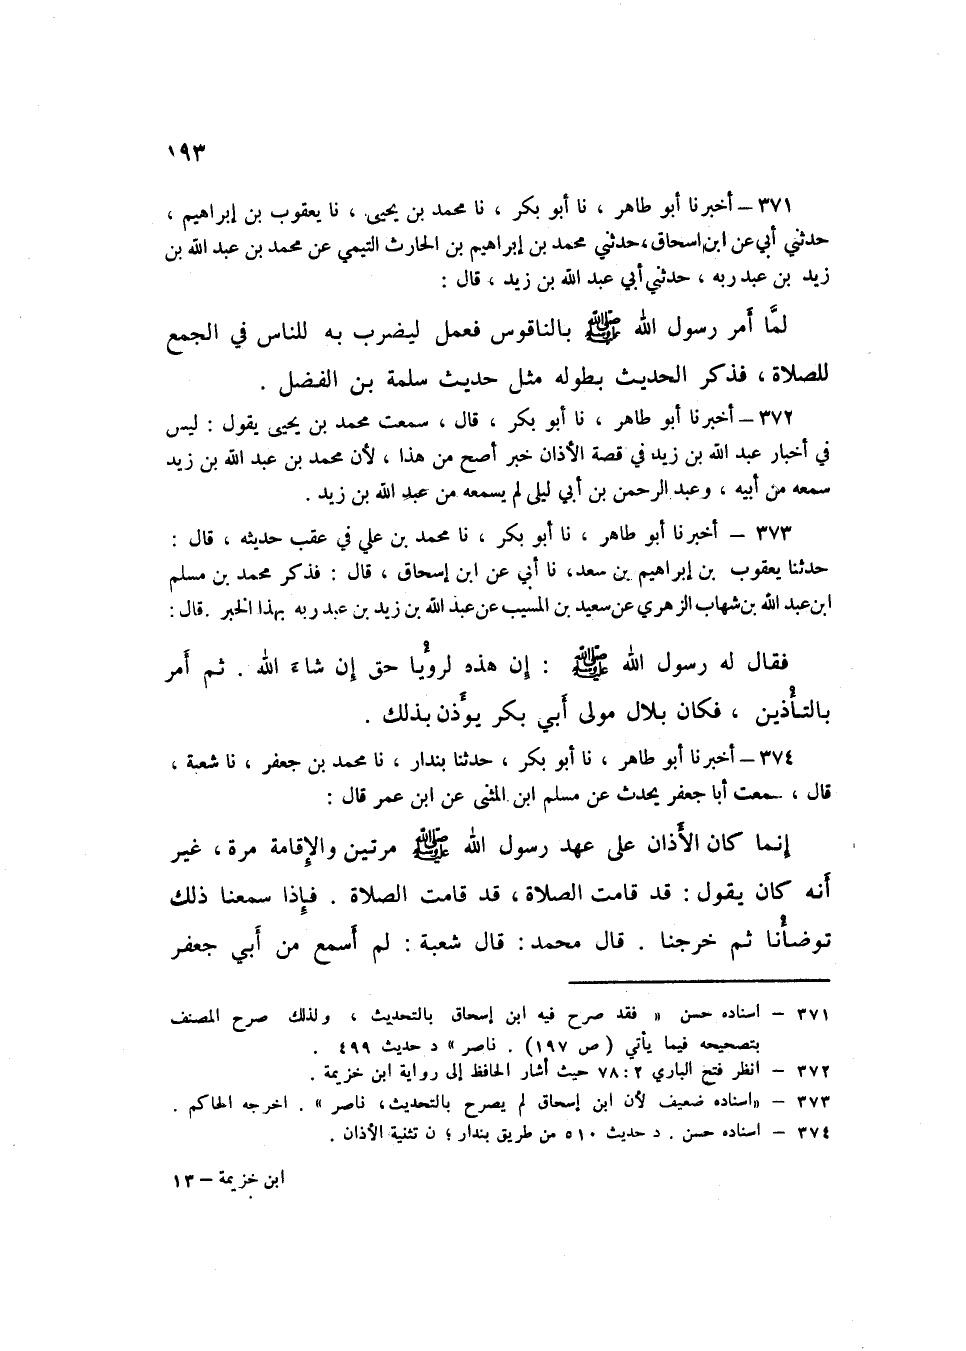 ١٩٣
٣٧١ – أخبرنا أبو طاهر ، نا أبو بكر ، نا محمد بن يحيى ، نا يعقوب بن إبراهيم ،
حدثني أبي عن ابن اسحاق، حدثني محمد بن إبراهيم بن الحارث التيمي عن محمد بن عبد الله بن
زيد بن عبد ربه ، حدثني أبي عبد الله بن زيد ، قال :
لمَّا أمر رسول الله ﷺ بالناقوس فعمل ليضرب به للناس في الجمع
للصلاة ، فذكر الحديث بطوله مثل حديث سلمة بن الفضل .
٣٧٢ – أخبرنا أبو طاهر ، نا أبو بكر ، قال ، سمعت محمد بن يحيى يقول : ليس
في أخبار عبد الله بن زيد في قصة الأذان خبر أصح من هذا ، لأن محمد بن عبد الله بن زيد
سمعه من أبيه ، وعبد الرحمن بن أبي ليلى لم يسمعه من عبد الله بن زيد .
٣٧٣ – أخبرنا أبو طاهر ، نا أبو بكر ، نا محمد بن علي في عقب حديثه ، قال :
حدثنا يعقوب بن إبراهيم بن سعد، نا أبي عن ابن إسحاق ، قال : فذكر محمد بن مسلم
ابن عبد الله بن شهاب الزهري عن سعيد بن المسيب عن عبد الله بن زيد بن عبد ربه بهذا الخبر . قال :
فقال له رسول الله ﷺ : إن هذه لرؤيا حق إن شاء الله . ثم أمر
بالتأذين ، فكان بلال مولى أبي بكر يؤذن بذلك .
٣٧٤ – أخبرنا أبو طاهر ، نا أبو بكر ، حدثنا بندار ، نا محمد بن جعفر ، نا شعبة ،
قال ، سمعت أبا جعفر يحدث عن مسلم ابن المثنى عن ابن عمر قال :
إنما كان الأذان على عهد رسول الله ﷺ مرتين والإقامة مرة ، غير
أنه كان يقول : قد قامت الصلاة ، قد قامت الصلاة . فإذا سمعنا ذلك
توضأنا ثم خرجنا . قال محمد : قال شعبة : لم أسمع من أبي جعفر
٣٧١ – اسناده حسن « فقد صرح فيه ابن إسحاق بالتحديث ، ولذلك صرح المصنف
بتصحيحه فيما يأتي ( ص ١٩٧) . ناصر » د حديث ٤٩٩ .
٣٧٢ – انظر فتح الباري ٢ : ٧٨ حيث أشار الحافظ إلى رواية ابن خزيمة .
٣٧٣ – «اسناده ضعيف لأن ابن إسحاق لم يصرح بالتحديث، ناصر » . اخرجه الحاكم .
٣٧٤ – اسناده حسن . د حديث ٥١٠ من طريق بندار ؛ ن تثنية الأذان .
ابن خزيمة – ١٣